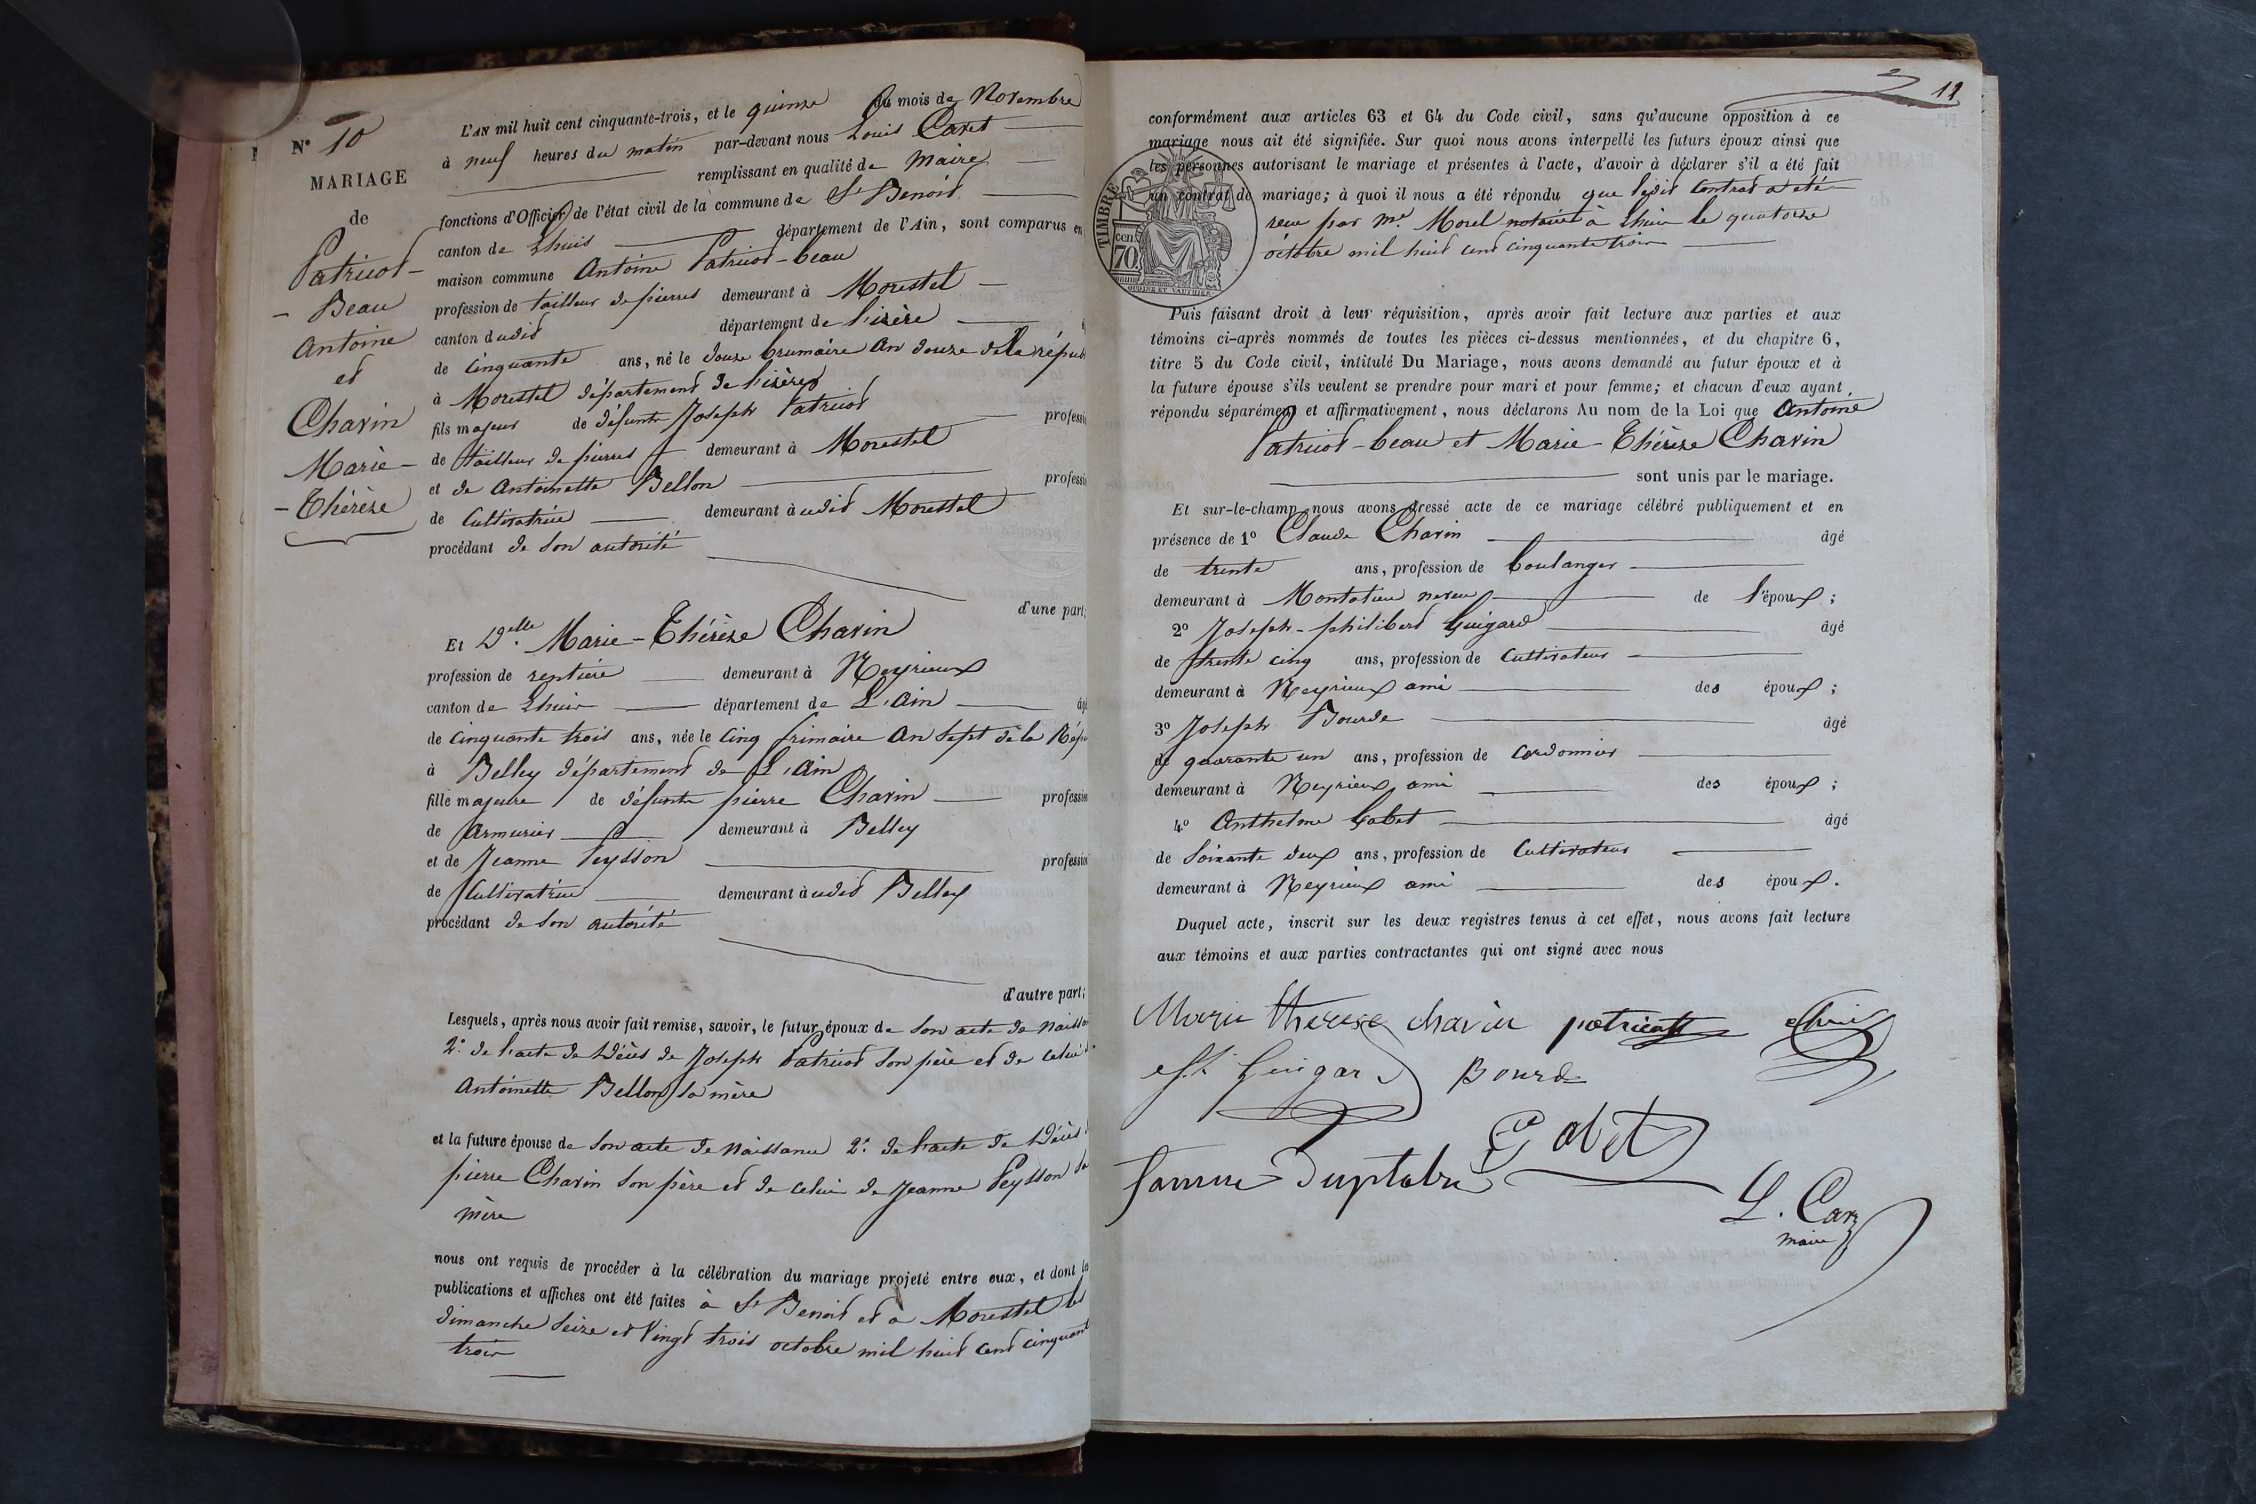 N° 10
MARIAGE
de
Patricot-
- Beau
Antoine
et
Chavin
Marie-
-Thérèse
L'AN mil huit cent cinquante-trois, et le quinze du mois de Novembre
à neuf heures du matin par-devant nous Louis Caret
remplissant en qualité de Maire
fonctions d'Officier de l'état civil de la commune de St Benoit
canton de Lhuis département de l'Ain, sont comparus en
maison commune Antoine Patricot-beau
profession de tailleur de pierres demeurant à Morestel
canton dudit département de l'isère
de cinquante ans, né le douze brumaire An douze de la répub
à Morestel département de l'isère
fils majeur de défunt Joseph Patricot professi
de tailleur de pierres demeurant à Morestel
et de Antoinette Bellon professi
de Cultivatrice demeurant à udit Morestel
procédant de son autorité
d'une part;
Et Delle Marie-Thérèse Chavin
profession de rentière demeurant à Neyrieux
canton de Lhuis département de L'Ain âg
de Cinquante trois ans, née le Cinq frimaire An Sept de la Répu
à Belley département de L'Ain
fille majeure de défunt pierre Chavin profession
de Armurier demeurant à Belley
et de Jeanne Peysson profession
de Cultivatrice demeurant à udit Belley
procédant de son autorité
d'autre part;
Lesquels, après nous avoir fait remise, savoir, le futur époux de son acte de naissa
2° de l'acte de Décès de Joseph Patricot son père et de celui d
Antoinette Bellon sa mère
et la future épouse de son acte de naissance 2° de l'acte de Décès
pierre Chavin son père et de celui de Jeanne Peysson sa
mère
nous ont requis de procéder à la célébration du mariage projeté entre eux, et dont les
publications et affiches ont été faites à St Benoit et à Morestel les
dimanche Seize et Vingt trois octobre mil huit cent cinquant
trois
11
conformément aux articles 63 et 64 du Code civil, sans qu'aucune opposition à ce
mariage nous ait été signifiée. Sur quoi nous avons interpellé les futurs époux ainsi que
les personnes autorisant le mariage et présentes à l'acte, d'avoir à déclarer s'il a été fait
un contrat de mariage; à quoi il nous a été répondu que ledit Contrat a été
recu par me. Morel notaire à Lhuis le quatorze
octobre mil huit cent cinquante trois
TIMBRE
cen.
70
Puis faisant droit à leur réquisition, après avoir fait lecture aux parties et aux
témoins ci-après nommés de toutes les pièces ci-dessus mentionnées, et du chapitre 6,
titre 5 du Code civil, intitulé Du Mariage, nous avons demandé au futur époux et à
la future épouse s'ils veulent se prendre pour mari et pour femme; et chacun d'eux ayant
répondu séparément et affirmativement, nous déclarons Au nom de la Loi que Antoine
Patricot-beau et Marie-Thérèse Chavin
sont unis par le mariage.
Et sur-le-champ nous avons dressé acte de ce mariage célébré publiquement et en
présence de 1° Claude Chavin âgé
de trente ans, profession de boulanger
demeurant à Montalieu neveu de l'époux;
2° Joseph-philibert Guigard âgé
de trente cinq ans, profession de Cultivateur
demeurant à Neyrieux ami des époux;
3° Joseph Bourde âgé
de quarante un ans, profession de cordonnier
demeurant à Neyrieux ami des époux;
4° Anthelme Gabet âgé
de Soixante deux ans, profession de Cultivateur
demeurant à Neyrieux ami des époux.
Duquel acte, inscrit sur les deux registres tenus à cet effet, nous avons fait lecture
aux témoins et aux parties contractantes qui ont signé avec nous
Marie therese chavin patricot
Guigard Bourde
Gabet
L. Caret
maire